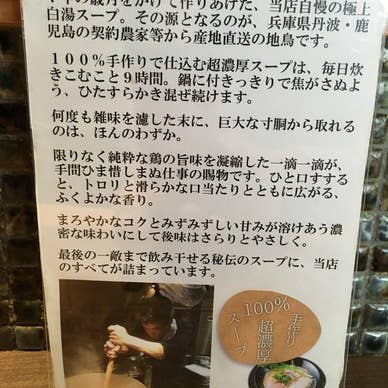 年の歳月をかけて作りあげた、当店自慢の極上
白湯スープ。その源となるのが、兵庫県丹波・鹿
児島の契約農家等から産地直送の地鳥です。
１００％手作りで仕込む超濃厚スープは、毎日炊
きこむこと９時間。鍋に付きっきりで焦がさぬよ
う、ひたすらかき混ぜ続けます。
何度も雑味を濾した末に、巨大な寸胴から取れる
のは、ほんのわずか。
限りなく純粋な鶏の旨味を凝縮した一滴一滴が、
手間ひま惜しまぬ仕事の賜物です。ひと口すする
と、トロリと滑らかな口当たりとともに広がる、
ふくよかな香り。
まろやかなコクとみずみずしい甘みが溶けあう濃
密な味わいにして後味はさらりとやさしく。
最後の一敵まで飲み干せる秘伝のスープに、当店
のすべてが詰まっています。
100%
手作り
超濃厚
スープ